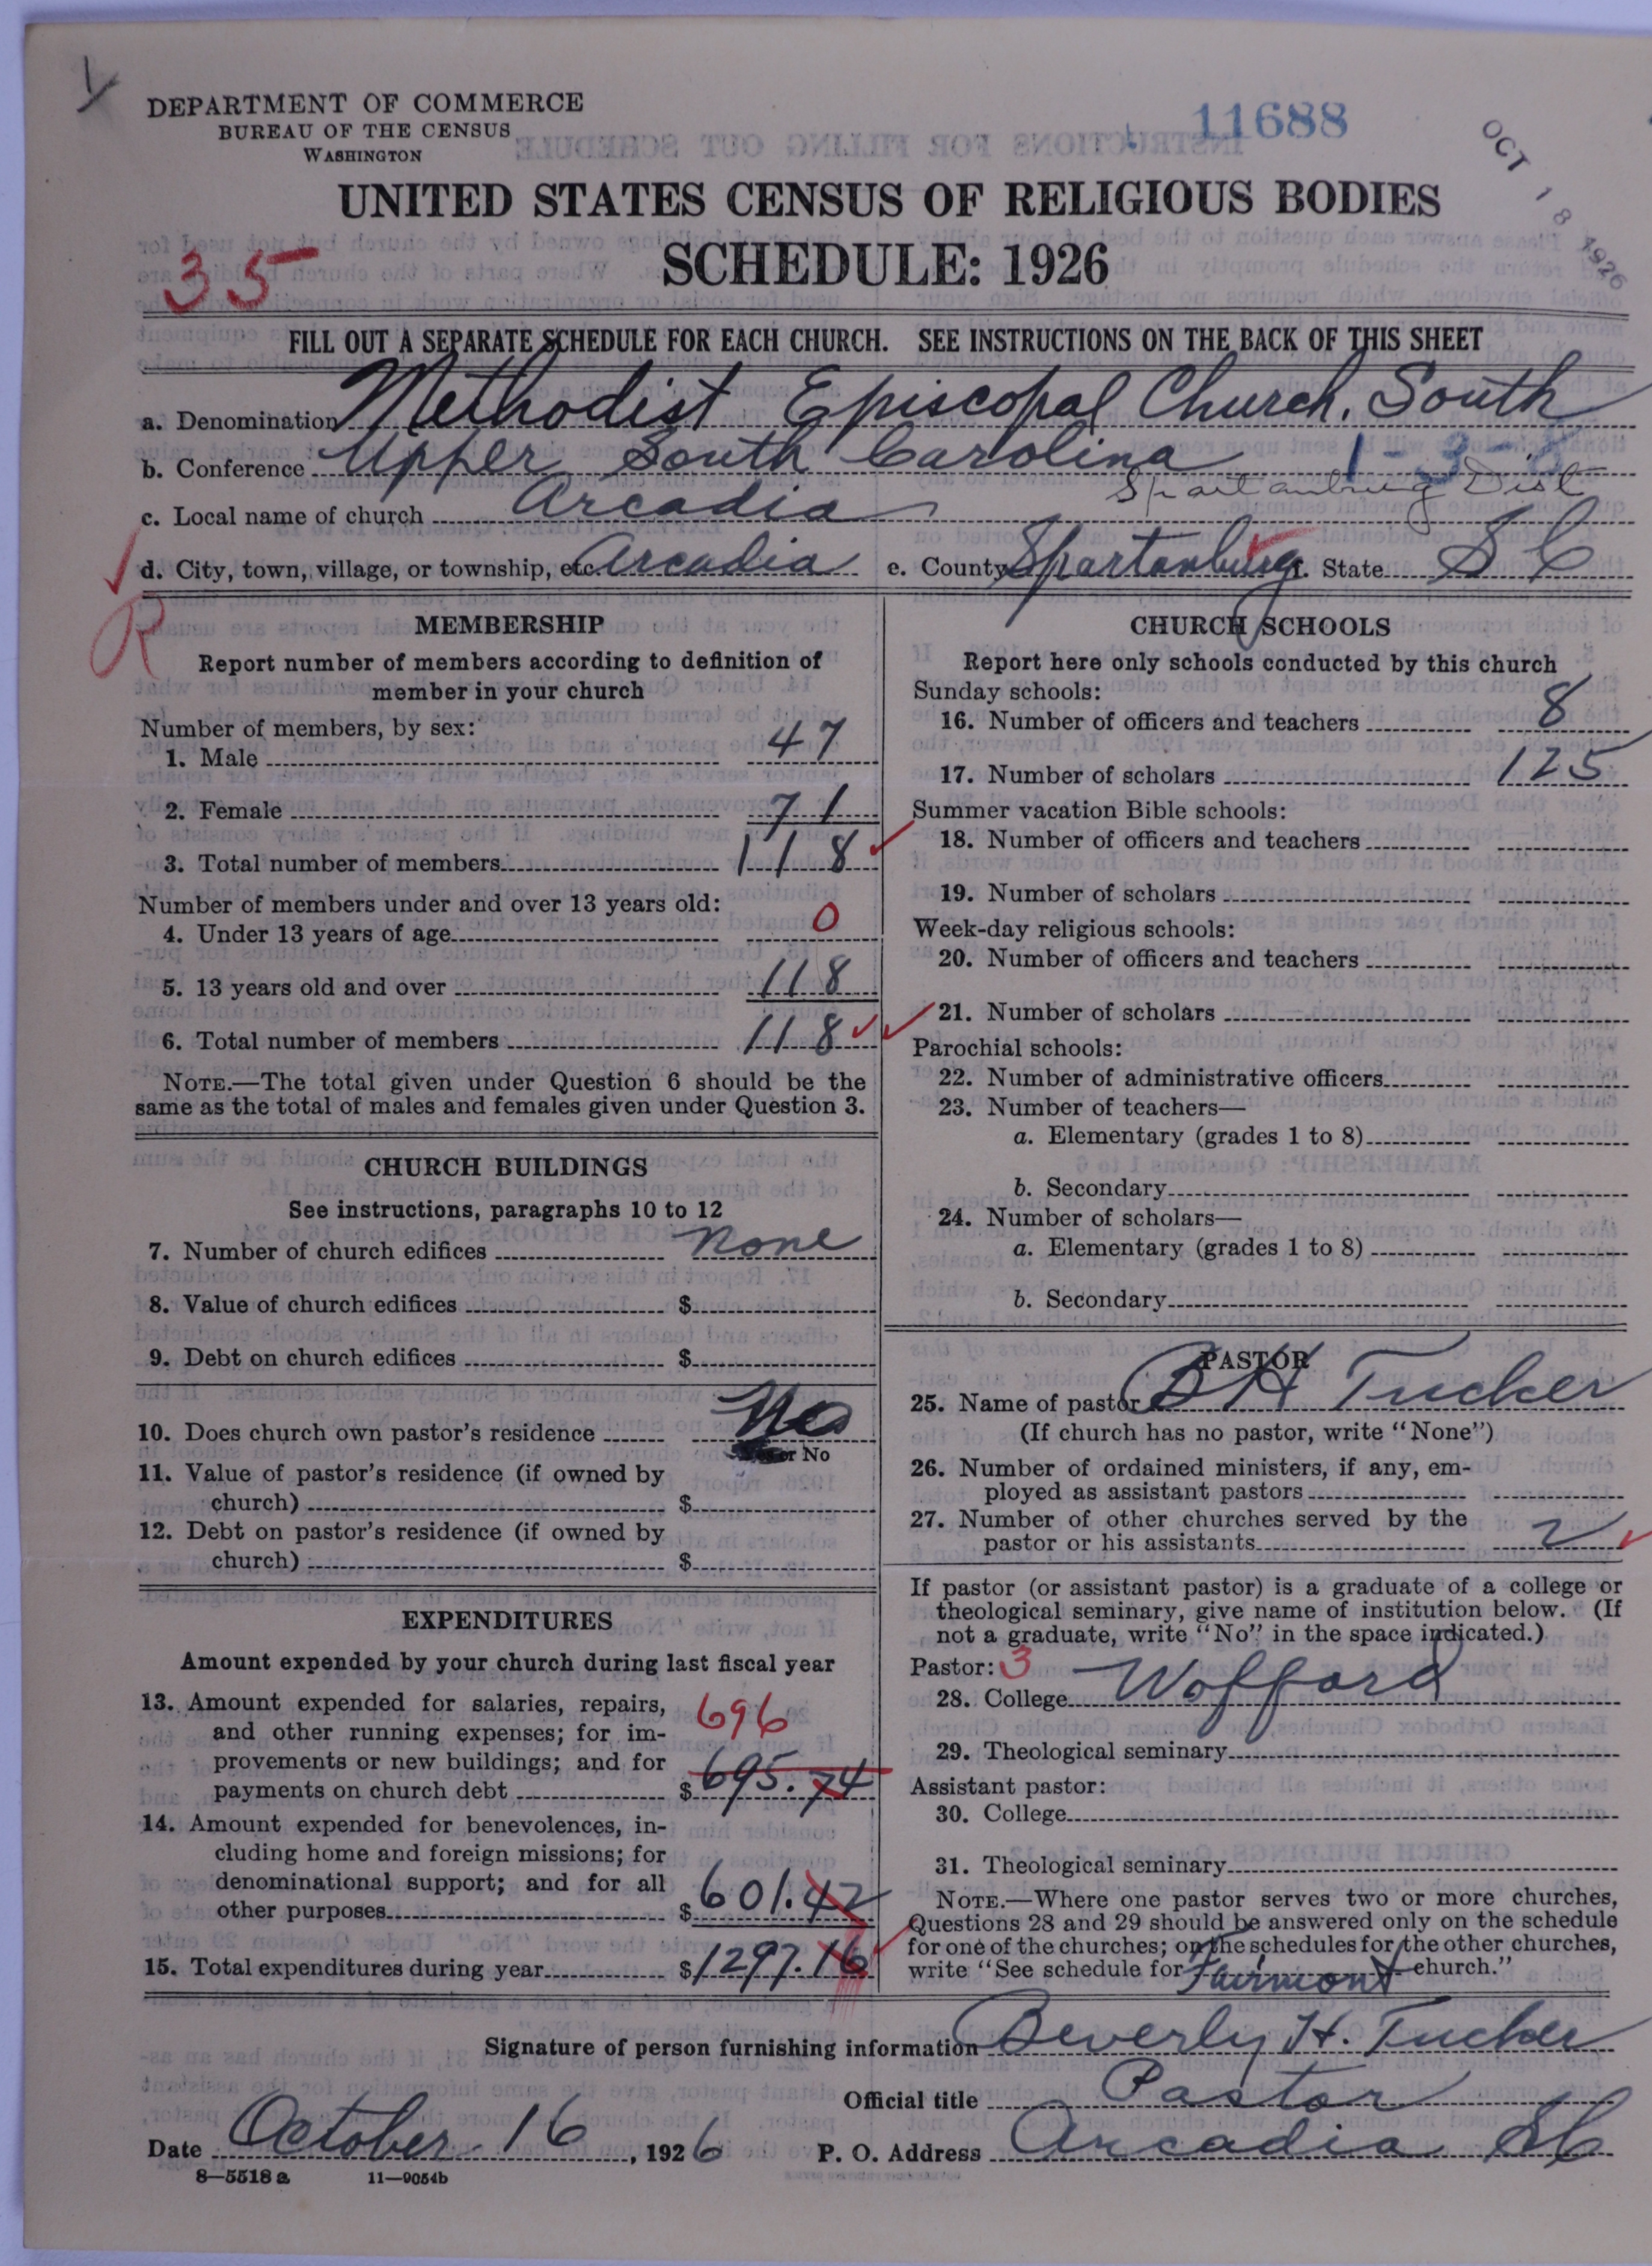 DEPARTMENT OF COMMERCE
BUREAU OF THE CENSUS
WASHINGTON
11688
OCT 18 1926
UNITED STATES CENSUS OF RELIGIOUS BODIES
SCHEDULE: 1926
35
FILL OUT A SEPARATE SCHEDULE FOR EACH CHURCH. SEE INSTRUCTIONS ON THE BACK OF THIS SHEET
a. Denomination Methodist Episcopal Church, South
b. Conference Upper South Carolina 1-3-
Spartanburg Dist
c. Local name of church Arcadia
d. City, town, village, or township, etc. Arcadia e. County Spartanburg f. State S C
R
MEMBERSHIP
Report number of members according to definition of
member in your church
Number of members, by sex:
1. Male 47
2. Female 71
3. Total number of members 118
Number of members under and over 13 years old:
4. Under 13 years of age 0
5. 13 years old and over 118
6. Total number of members 118
NOTE.—The total given under Question 6 should be the
same as the total of males and females given under Question 3.
CHURCH BUILDINGS
See instructions, paragraphs 10 to 12
7. Number of church edifices none
8. Value of church edifices $
9. Debt on church edifices $
10. Does church own pastor's residence No
or No
11. Value of pastor's residence (if owned by
church) $
12. Debt on pastor's residence (if owned by
church) $
EXPENDITURES
Amount expended by your church during last fiscal year
13. Amount expended for salaries, repairs,
and other running expenses; for im-
provements or new buildings; and for
payments on church debt $ 695.74
696
14. Amount expended for benevolences, in-
cluding home and foreign missions; for
denominational support; and for all
other purposes $ 601.42
15. Total expenditures during year $ 1297.16
CHURCH SCHOOLS
Report here only schools conducted by this church
Sunday schools:
16. Number of officers and teachers 8
17. Number of scholars 125
Summer vacation Bible schools:
18. Number of officers and teachers
19. Number of scholars
Week-day religious schools:
20. Number of officers and teachers
21. Number of scholars
Parochial schools:
22. Number of administrative officers
23. Number of teachers—
a. Elementary (grades 1 to 8)
b. Secondary
24. Number of scholars—
a. Elementary (grades 1 to 8)
b. Secondary
PASTOR
25. Name of pastor B H Tucker
(If church has no pastor, write "None")
26. Number of ordained ministers, if any, em-
ployed as assistant pastors
27. Number of other churches served by the
pastor or his assistants 2
If pastor (or assistant pastor) is a graduate of a college or
theological seminary, give name of institution below. (If
not a graduate, write "No" in the space indicated.)
Pastor: 3
28. College Wofford
29. Theological seminary
Assistant pastor:
30. College
31. Theological seminary
NOTE.—Where one pastor serves two or more churches,
Questions 28 and 29 should be answered only on the schedule
for one of the churches; on the schedules for the other churches,
write "See schedule for Fairmont church."
Signature of person furnishing information Beverly H. Tucker
Official title Pastor
Date October 16, 1926 P. O. Address Arcadia SC
8—5518 a 11—9054b